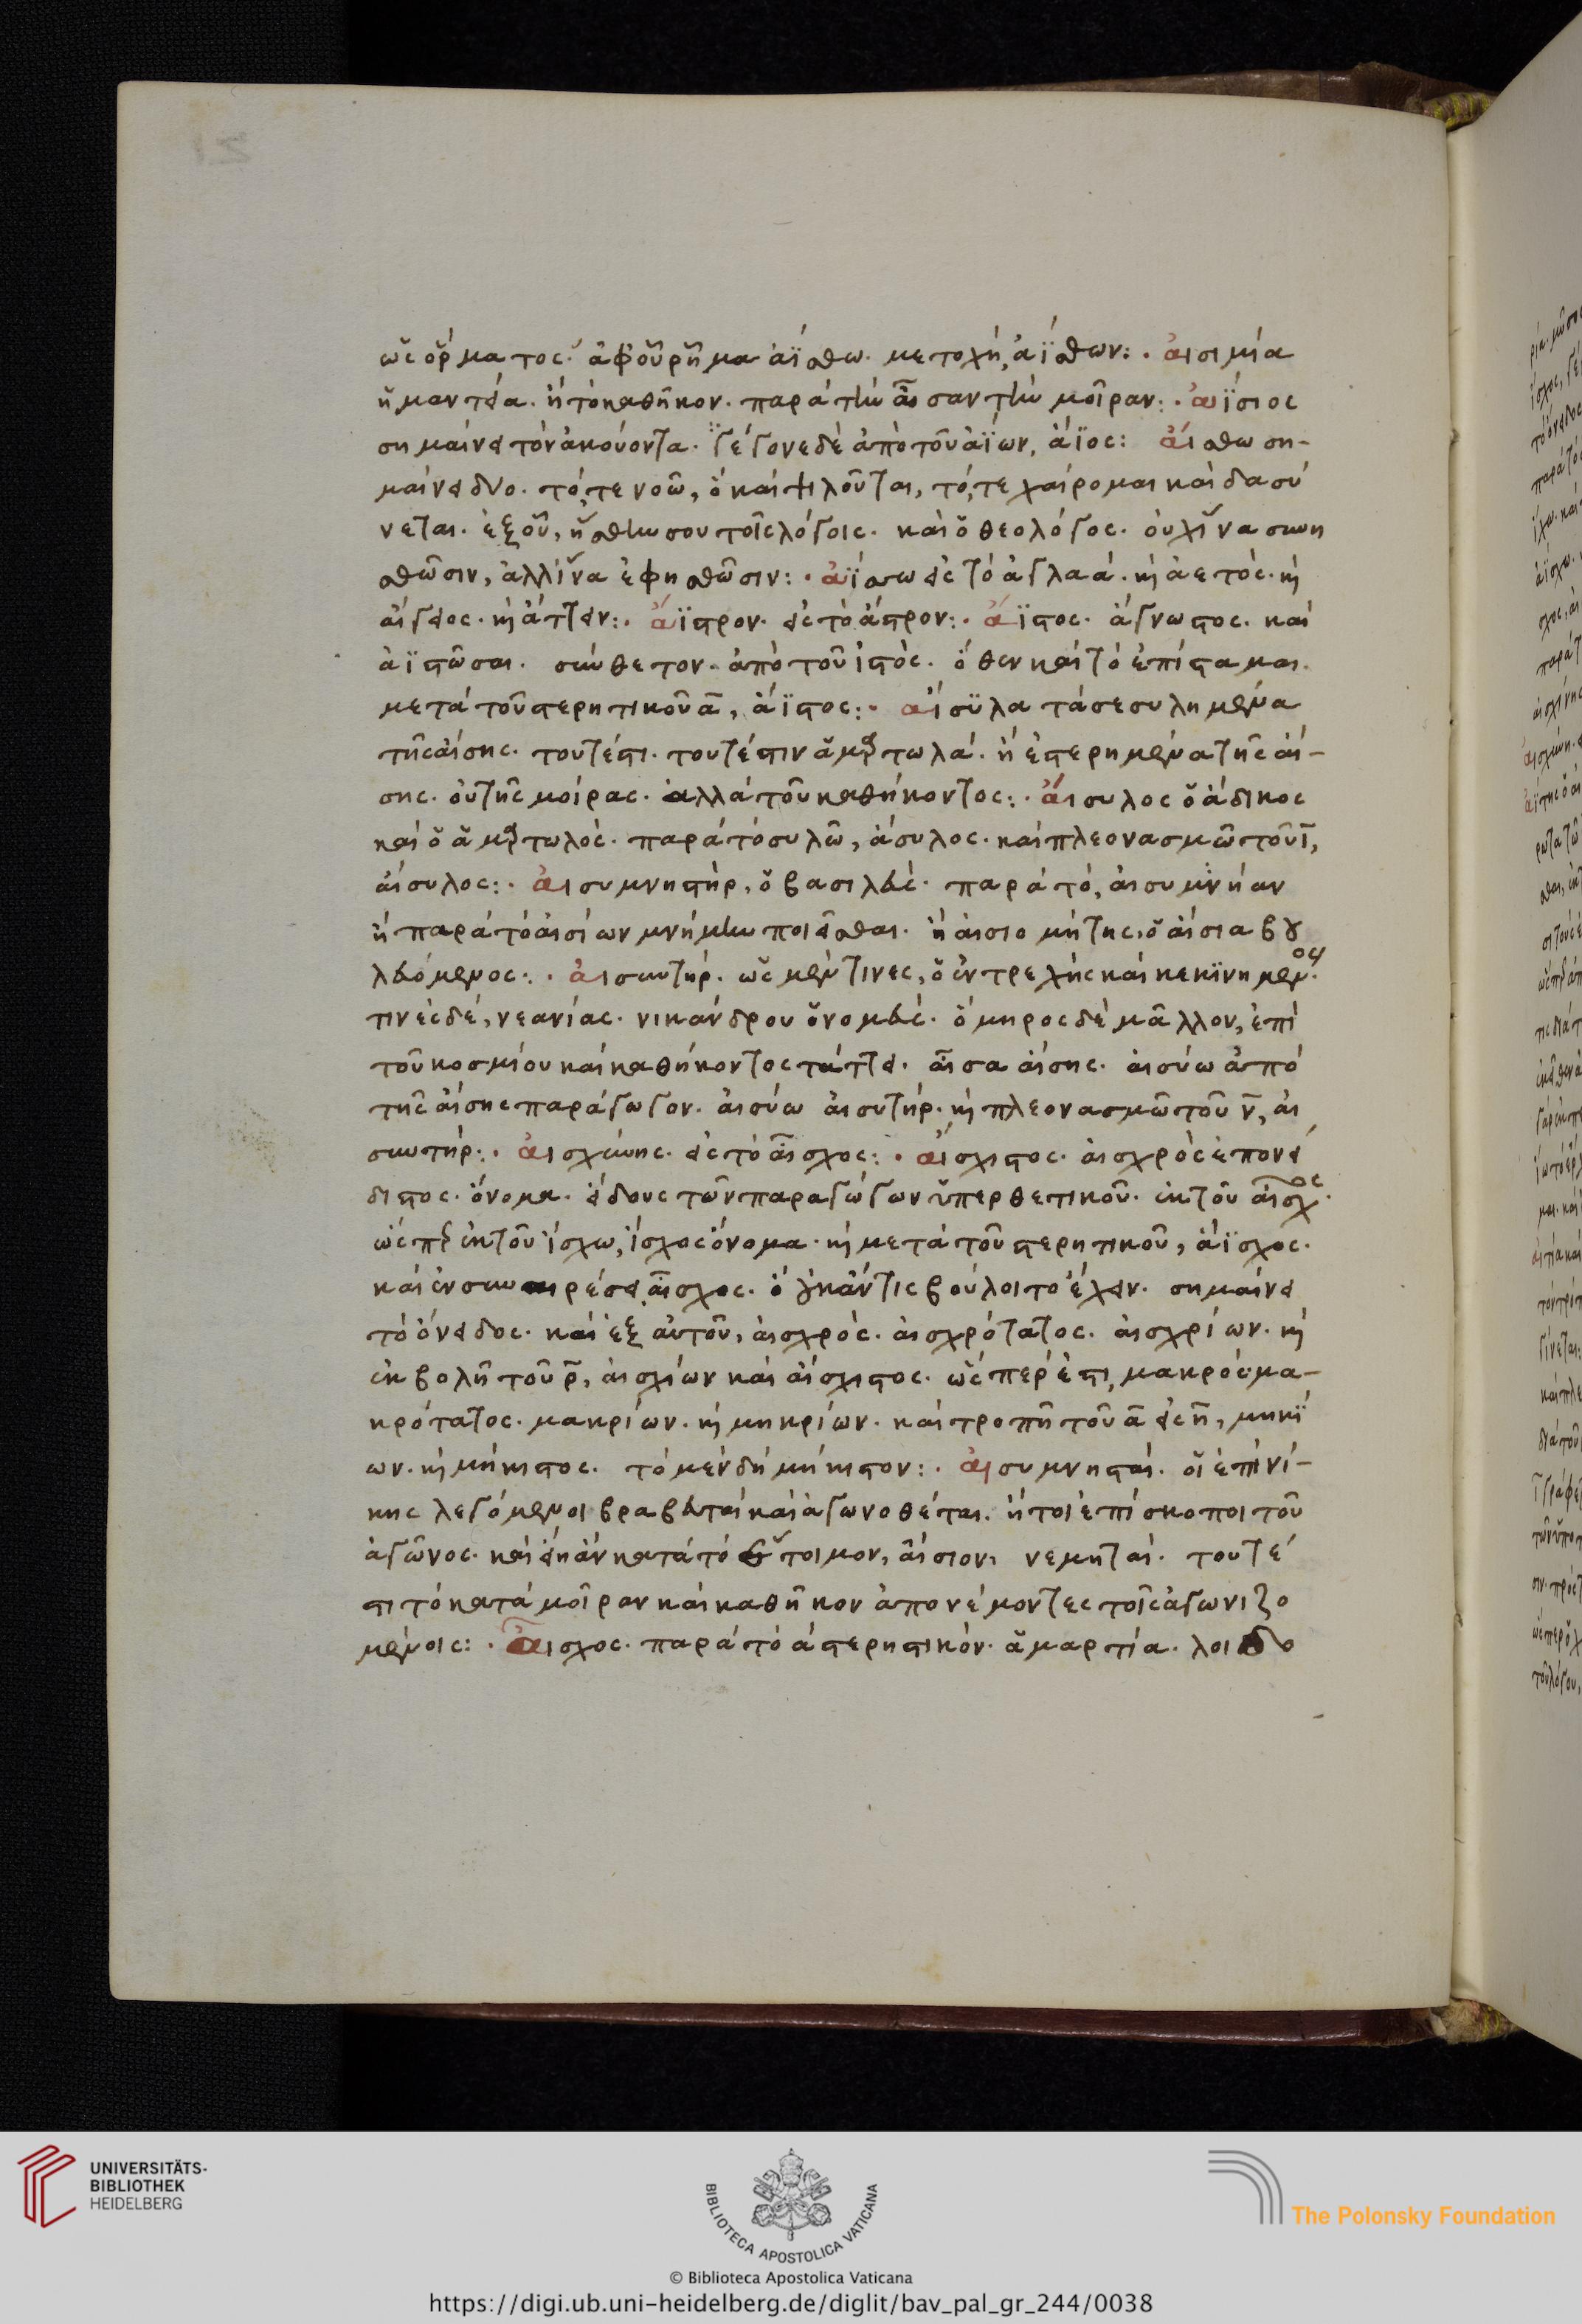 ὡς ὅρματος. ἀφ οὗ ῥῆμα ἀΐσθω. μετοχή, ἀΐσθων: · αἰσιμία
ἡ μαντεία. ἢ τὸ καθῆκον. παρὰ τὴν αἶσαν τὴν μοῖραν: · ἀΐσιος
σημαίνει τὸν ἀκούοντα. γέγονε δὲ ἀπὸ τοῦ ἀΐων, ἄϊος: αἴσθω ση-
μαίνει δύο. τό, τε νοῶ, ὃ καὶ ψιλοῦται, τό, τε χαίρομαι καὶ δασύ
νεται. ἐξ οὗ, ἥσθην σου τοῖς λόγοις. καὶ ὁ θεολόγος. οὐχ ἵνα συνη
σθῶσιν, ἀλλ ἵνα ἐφησθῶσιν: · εἰς τὸ ἀγλαά. καὶ ἀετός. καὶ
αἴγειος. καὶ ἄττειν: · ἄϊστρον. εἰς τὸ ἄστρον: · ἄϊστος. ἄγνωστος. καὶ
ἀϊστῶσαι. σύνθετον. ἀπὸ τοῦ ἱστός. ὅθεν καὶ τὸ ἐπίσταμαι.
μετὰ τοῦ στερητικοῦ α, ἄϊστος: · αἴσυλα τὰ σεσυλημένα
τῆς αἴσης. τουτέστι. τουτέστιν ἁμαρτωλά. ἢ ἐστερημένα τῆς αἴ-
σης. οὐ τῆς μοίρας. ἀλλὰ τοῦ καθήκοντος: · αἴσυλος ὁ ἄδικος
καὶ ὁ ἁμαρτωλός. παρὰ τὸ συλῶ, ἄσυλος. καὶ πλεονασμῶ τοῦ ι,
αἴσυλος: · αἰσυμνηστήρ, ὁ βασιλεύς. παρὰ τό, αἰσυμνήαν
ἢ παρὰ τὸ αἰσίων μνήμην ποιεῖσθαι. ἢ αἰσιομήτης, ὁ αἴσια βου
λευόμενος: · αἰσυντήρ. ὡς μέν τινες, ὁ ἐντρεχὴς καὶ κεκινημένος.
τινὲς δέ, νεανίας. νικάνδρου ὄνομα εἰς. ὅμηρος δὲ μᾶλλον, ἐπὶ
τοῦ κοσμίου καὶ καθήκοντος τάττει. αἶσα αἴσης. αἰσύω ἀπὸ
τῆς αἴσης παράγωγον. αἰσύω αἰσυτήρ. καὶ πλεονασμῶ τοῦ ν, αἰ
συντήρ: · αἰσχύνης. εἰς τὸ αἶσχος: · αἴσχιστος. αἰσχρὸς ἐπονεί
διστος. ὄνομα. εἴδους τῶν παραγώγων ὑπερθετικοῦ. ἐκ τοῦ αἶσχος.
ὥσπερ ἐκ τοῦ ἴσχω, ἴσχος ὄνομα. καὶ μετὰ τοῦ στερητικοῦ, ἄϊσχος.
καὶ ἐν συναιρέσει, αἶσχος. ὃ οὐκ ἄν τις βούλοιτο ἔχειν. σημαίνει
τὸ ὄνειδος. καὶ ἐξ αὐτοῦ, αἰσχρός. αἰσχρότατος. αἰσχρίων. καὶ
ἐκβολῆ τοῦ ρ, αἰσχίων καὶ αἴσχιστος. ὥσπερ ἐστὶ, μακρός μα-
κρότατος. μακρίων. καὶ μηκρίων. καὶ τροπῆ τοῦ α εἰς η, μηκί
ων. καὶ μήκιστος. τὸ μὲν δὴ μήκιστον: · αἰσυμνησταί. οἱ ἐπὶ νί-
κης λεγόμενοι βραβευταὶ καὶ ἀγωνοθέται. ἤτοι ἐπίσκοποι τοῦ
ἀγῶνος. καὶ κατὰ τὸ ἕτοιμον, αἴσιον, νεμηταί. τουτέ
στι τὸ κατὰ μοῖραν καὶ καθῆκον ἀπονέμοντες τοῖς ἀγωνιζο
μένοις: · αἶσχος. παρὰ τὸ α στερητικόν. ἁμαρτία. λοιδο
UNIVERSITÄTS-
BIBLIOTHEK
HEIDELBERG
BIBLIOTECA APOSTOLICA VATICANA
The Polonsky Foundation
© Biblioteca Apostolica Vaticana
https://digi.ub.uni-heidelberg.de/diglit/bav_pal_gr_244/0038